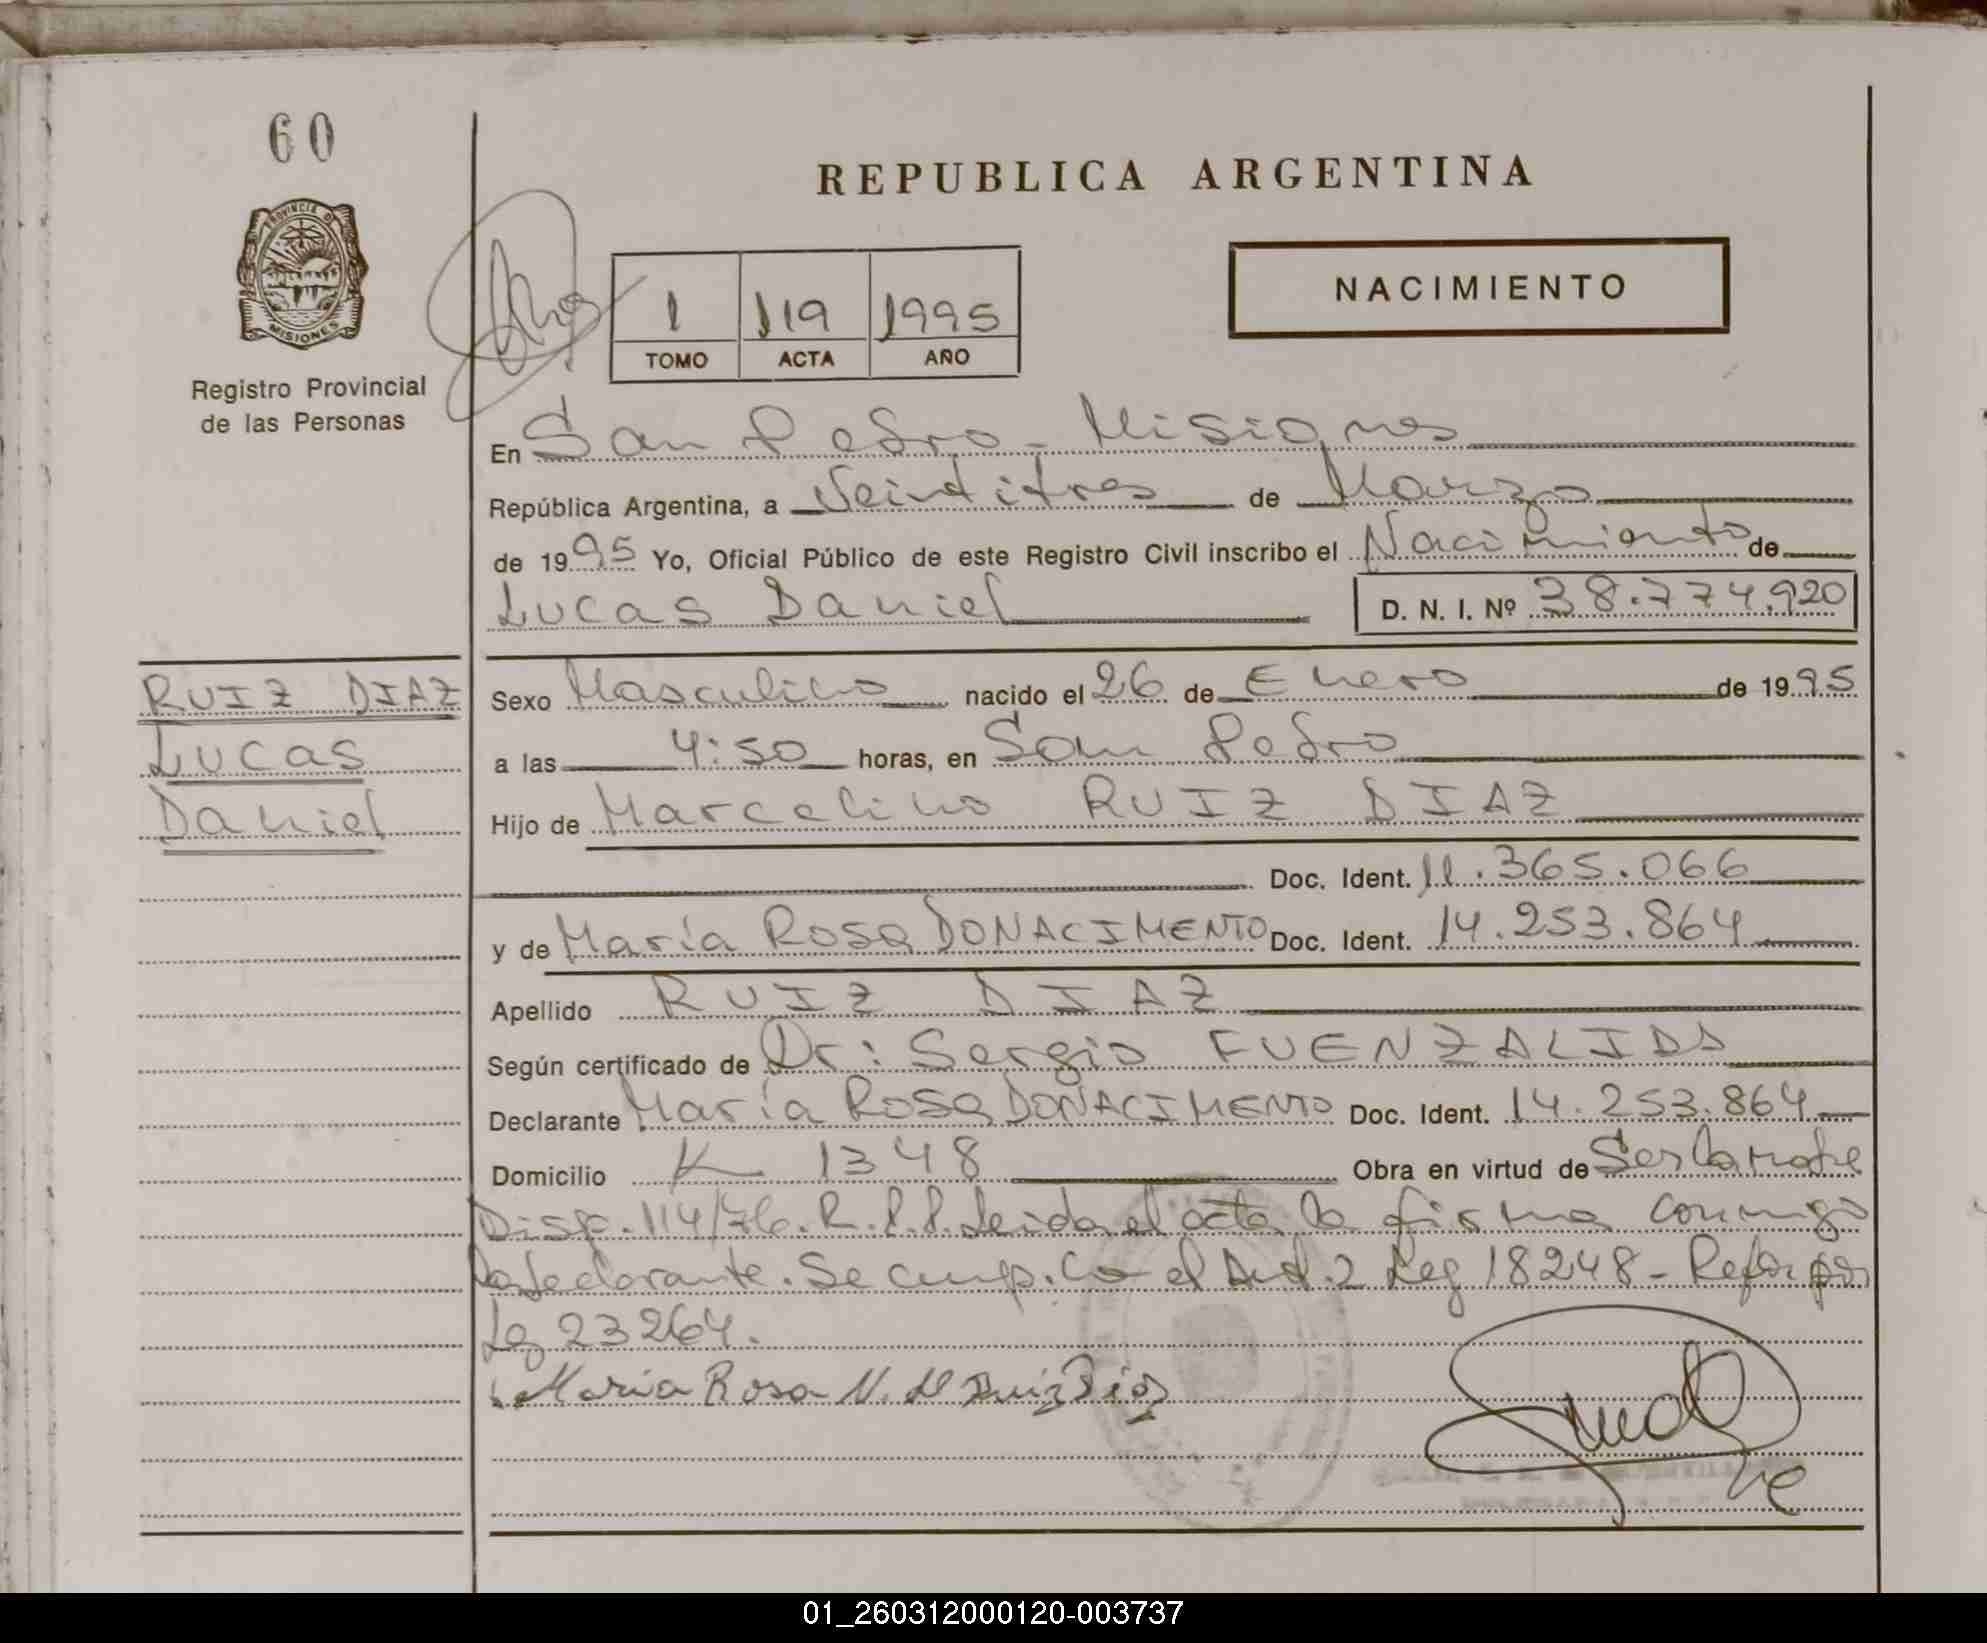 60
REPUBLICA ARGENTINA
PROVINCIA DE
MISIONES
NACIMIENTO
1 119 1995
TOMO ACTA AÑO
Registro Provincial
de las Personas
En San Pedro - Misiones
República Argentina, a Veintitres de Marzo
de 1995 Yo, Oficial Público de este Registro Civil inscribo el Nacimiento de
Lucas Daniel D. N. I. Nº 38.774.920
RUIZ DIAZ
Lucas
Daniel
Sexo Masculino nacido el 26 de Enero de 1995
a las 4:50 horas, en San Pedro
Hijo de Marcelino RUIZ DIAZ
Doc. Ident. 11.365.066
y de María Rosa DONACIMENTO Doc. Ident. 14.253.864
Apellido RUIZ DIAZ
Según certificado de Dr: Sergio FUENZALIDA
Declarante María Rosa DONACIMENTO Doc. Ident. 14.253.864
Domicilio K 1348 Obra en virtud de Ser la madre
Disp. 114/76. R.P.P. Leida el acta la firma conmigo
la declarante. Se cump. con el Art. 2 Ley 18248 - Refor. por
Ley 23264.
Maria Rosa N. de Ruiz Diaz
01_260312000120-003737